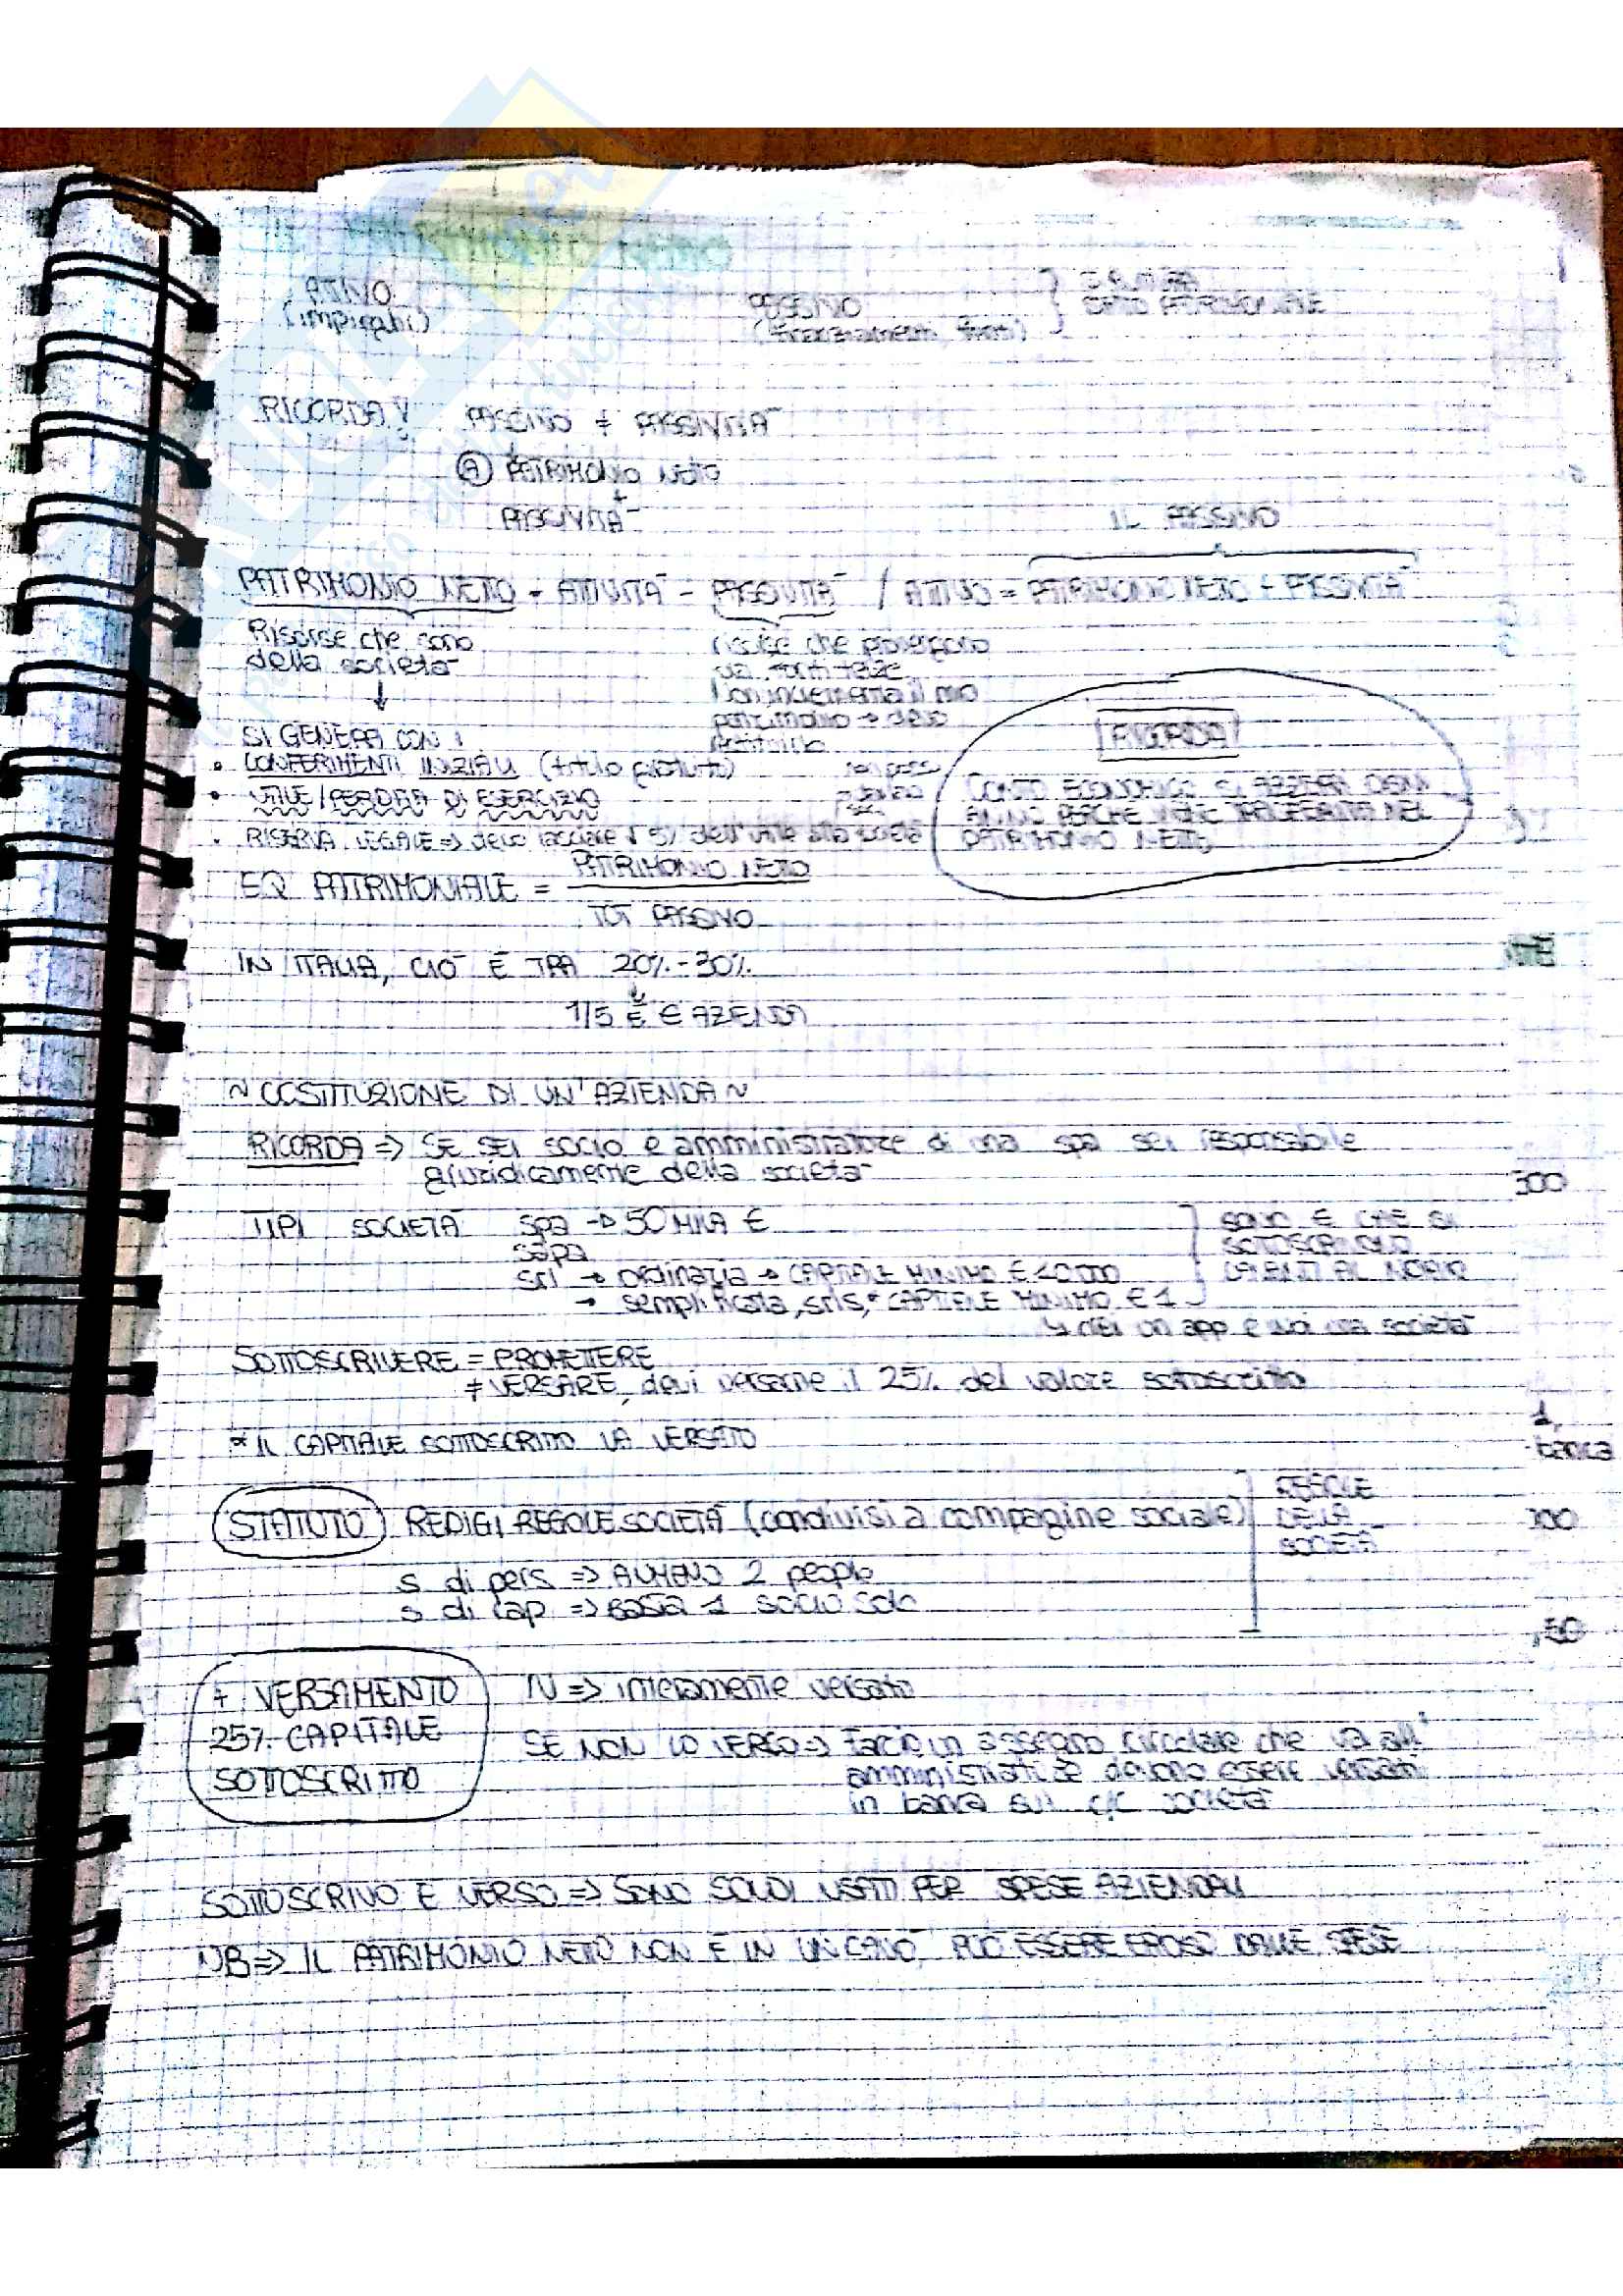 PATRIMONIO NETO
ATTIVO
(impieghi)
PASSIVO
(finanziamenti, fonti)
STATO PATRIMONIALE
RICORDA! PASSIVO ≠ PASSIVITÀ
(A) PATRIMONIO NETO
+
PASSIVITÀ
IL PASSIVO
PATRIMONIO NETO = ATTIVITÀ - PASSIVITÀ / ATTIVO = PATRIMONIO NETO + PASSIVITÀ
Risorse che sono
della società
risorse che provengono
da fonti terze
non incrementa il mio
patrimonio → devo
restituirlo
↓
SI GENERA CON:
• CONFERIMENTI INIZIALI (titolo gratuito)
• UTILE/PERDITA DI ESERCIZIO
• RISERVA LEGALE => devo lasciare il 5% dell'utile alla società
non posso
RICORDA
CONTO ECONOMICO SI AZZERA OGNI
ANNO PERCHÉ VIENE TRASFERITA NEL
PATRIMONIO NETTO
EQ PATRIMONIALE = PATRIMONIO NETO
TOT PASSIVO
IN ITALIA, CIÒ È TRA 20%-30%
↓
1/5 È € AZIENDA
~ COSTITUZIONE DI UN'AZIENDA ~
RICORDA => SE SEI SOCIO e amministratore di una spa sei responsabile
giuridicamente della società
TIPI SOCIETÀ spa → 50 MILA €
sapa
srl → ordinaria → CAPITALE MINIMO € 10 000
→ semplificata, srls,* CAPITALE MINIMO € 1
SONO € CHE SI
SOTTOSCRIVONO
DAVANTI AL NOTAIO
↳ crei un app e vuoi una società
SOTTOSCRIVERE = PROMETTERE
≠ VERSARE, devi versarne il 25% del valore sottoscritto
* IL CAPITALE SOTTOSCRITTO VA VERSATO
STATUTO REDIGI REGOLE SOCIETÀ (condivisi a compagine sociale)
REGOLE
DELLA
SOCIETÀ
s di pers => ALMENO 2 people
s di cap => BASTA 1 socio solo
+ VERSAMENTO
25% CAPITALE
SOTTOSCRITTO
IV => interamente versato
SE NON LO VERSO => faccio un assegno circolare che va all'
amministratore devono essere versati
in banca sul c/c società
SOTTOSCRIVO E VERSO => SONO SOLDI USATI PER SPESE AZIENDALI
NB => IL PATRIMONIO NETO NON È IN UN CAVÒ, PUÒ ESSERE EROSO DALLE SPESE
300
1,
banca
300
,50